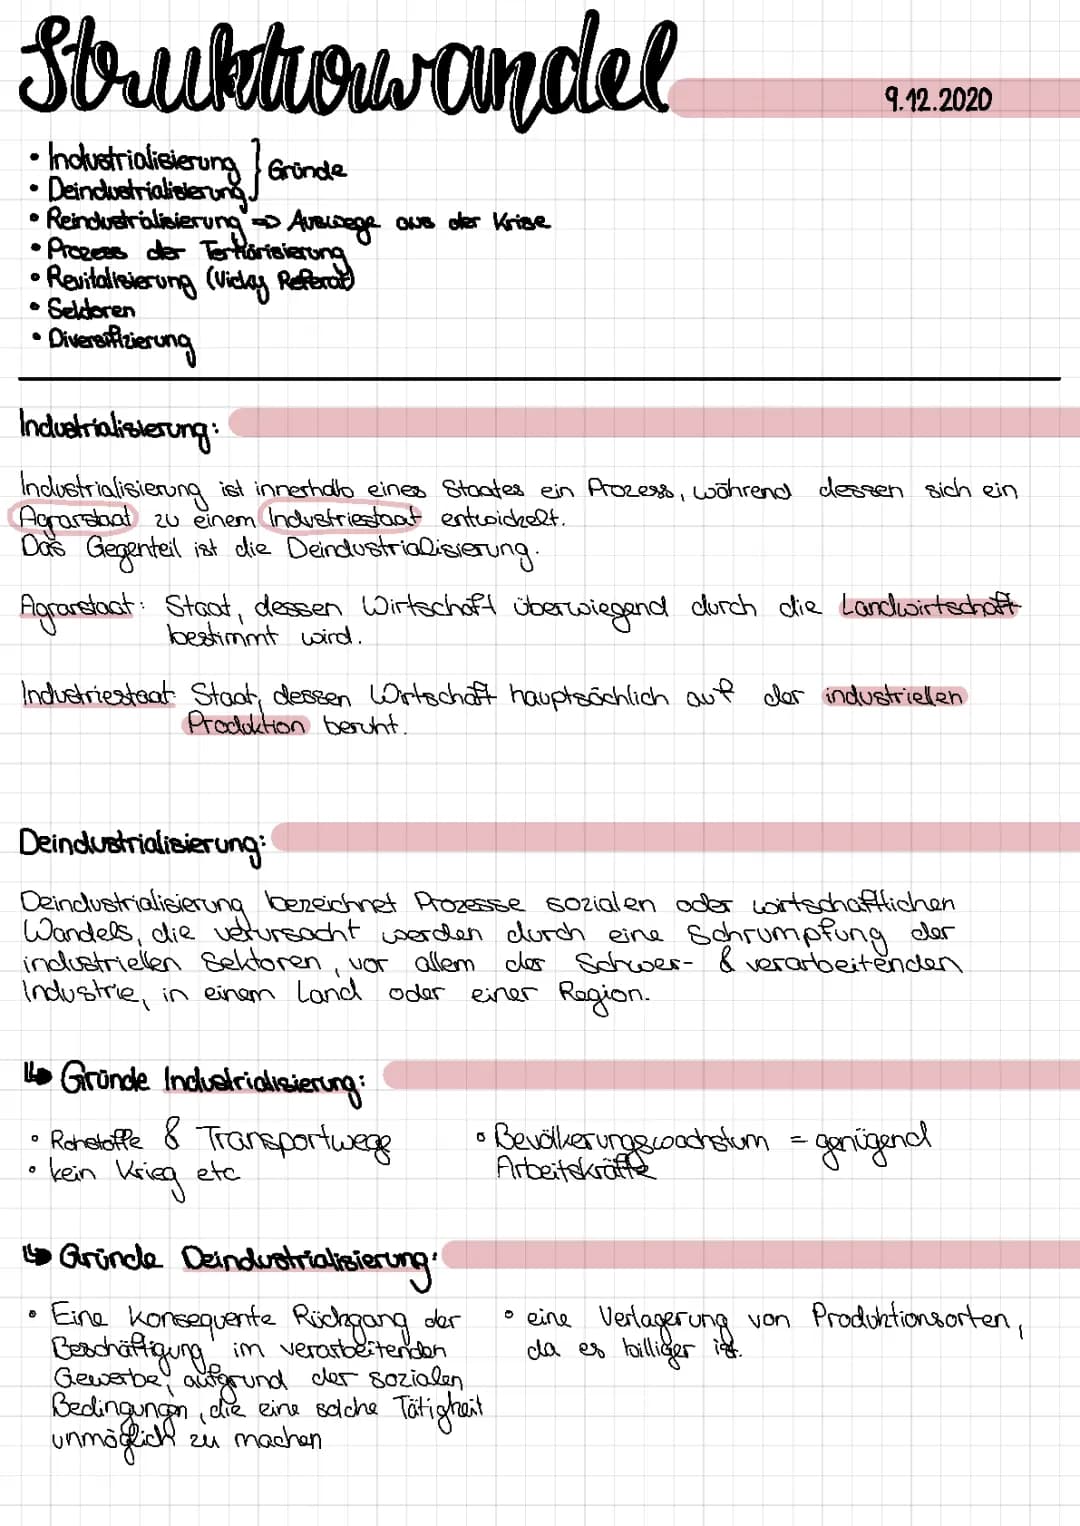 Strukturwandel
9.12.2020
• Industrialisierung } Gründe
• Deindustrialisierung
• Reindustrialisierung => Auswege aus der Krise
• Prozess der Tertiärisierung
• Revitalisierung (Vicky Referat)
• Sektoren
• Diversifizierung
Industrialisierung:
Industrialisierung ist innerhalb eines Staates ein Prozess, während dessen sich ein
Agrarstaat zu einem Industriestaat entwickelt.
Das Gegenteil ist die Deindustrialisierung.
Agrarstaat: Staat, dessen Wirtschaft überwiegend durch die Landwirtschaft
bestimmt wird.
Industriestaat: Staat, dessen Wirtschaft hauptsächlich auf der industriellen
Produktion beruht.
Deindustrialisierung:
Deindustrialisierung bezeichnet Prozesse sozialen oder wirtschaftlichen
Wandels, die verursacht werden durch eine Schrumpfung der
industriellen Sektoren, vor allem der Schwer- & verarbeitenden
Industrie, in einem Land oder einer Region.
↳ Gründe Industrialisierung:
• Rohstoffe & Transportwege
• kein Krieg etc
• Bevölkerungswachstum = genügend
Arbeitskräfte
↳ Gründe Deindustrialisierung:
• Eine Konsequente Rückgang der
Beschäftigung im verarbeitenden
Gewerbe, aufgrund der sozialen
Bedingungen, die eine solche Tätigkeit
unmöglich zu machen
• eine Verlagerung von Produktionsorten,
da es billiger ist.